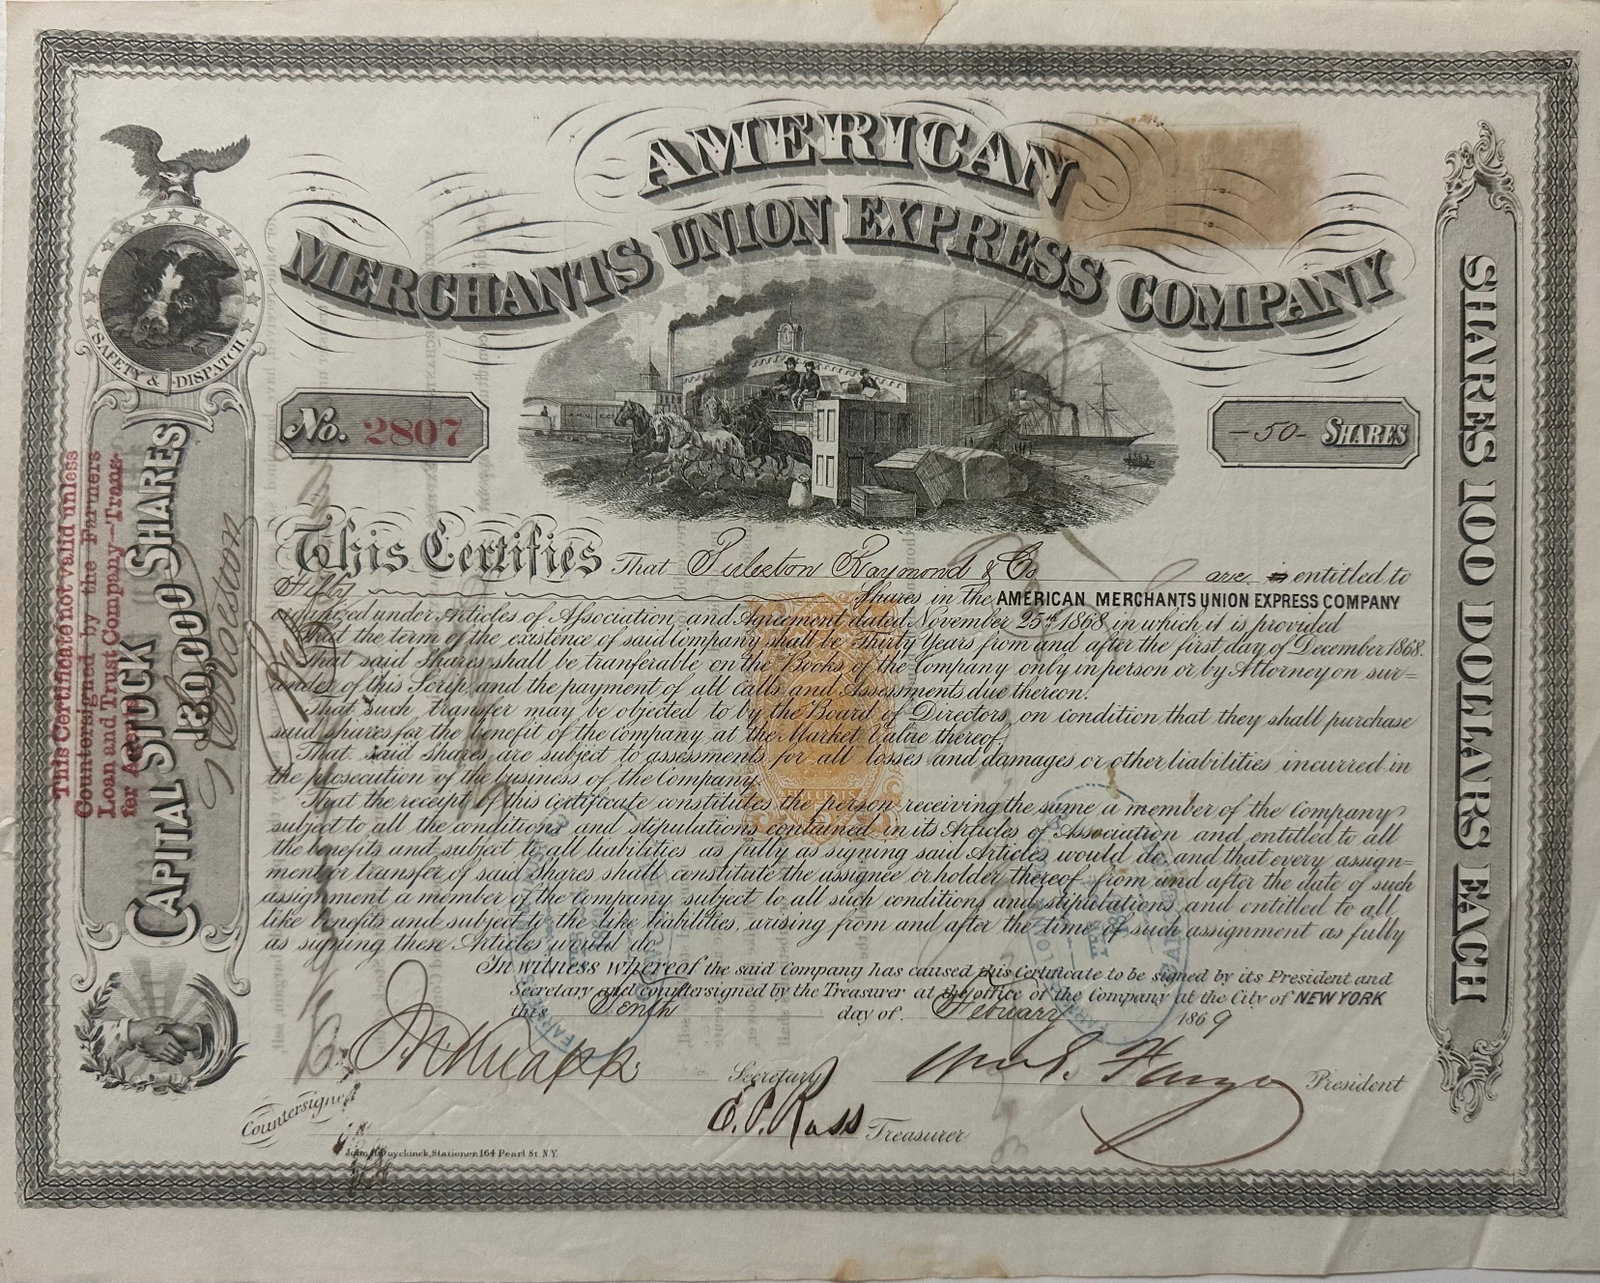 AMERICAN
MERCHANTS UNION EXPRESS COMPANY
SAFETY & DISPATCH.
No. 2807
-50- SHARES
This Certifies That Fuleston Raymond & Co are is entitled to
Fifty Shares in the AMERICAN MERCHANTS UNION EXPRESS COMPANY
organized under Articles of Association, and Agreement dated November 25th 1868, in which it is provided
That the term of the existence of said Company shall be Thirty Years from and after the first day of December 1868.
That said Shares shall be tranferable on the Books of the Company only in person or by Attorney on sur=
render of this Scrip, and the payment of all Calls and Assessments due thereon.
That such transfer may be objected to by the Board of Directors, on condition that they shall purchase
said shares for the benefit of the Company, at the Market Value thereof.
That said Shares are subject to assessments for all losses and damages or other liabilities incurred in
the prosecution of the business of the Company.
That the receipt of this Certificate constitutes the person receiving the same a member of the Company
subject to all the conditions and stipulations contained in its Articles of Association and entitled to all
the benefits and subject to all liabilities as fully as signing said Articles would do, and that every assign=
ment or transfer of said Shares shall constitute the assignee or holder thereof, from and after the date of such
assignment a member of the Company subject to all such conditions and stipulations and entitled to all
like benefits and subject to the like liabilities, arising from and after the time of such assignment as fully
as signing these Articles would do.
In witness whereof the said Company has caused this Certificate to be signed by its President and
Secretary and countersigned by the Treasurer at the office of the Company at the City of NEW YORK
this Tenth day of Febuary 1869
J. N. Knapp Secretary Wm G. Fargo President
Countersigned
E. P. Ross Treasurer
John Duyckinck, Stationer. 164 Pearl St N.Y.
CAPITAL STOCK 180,000 SHARES
This Certificate not valid unless
Countersigned by the Farmers
Loan and Trust Company—Trans-
fer Agents
SHARES 100 DOLLARS EACH